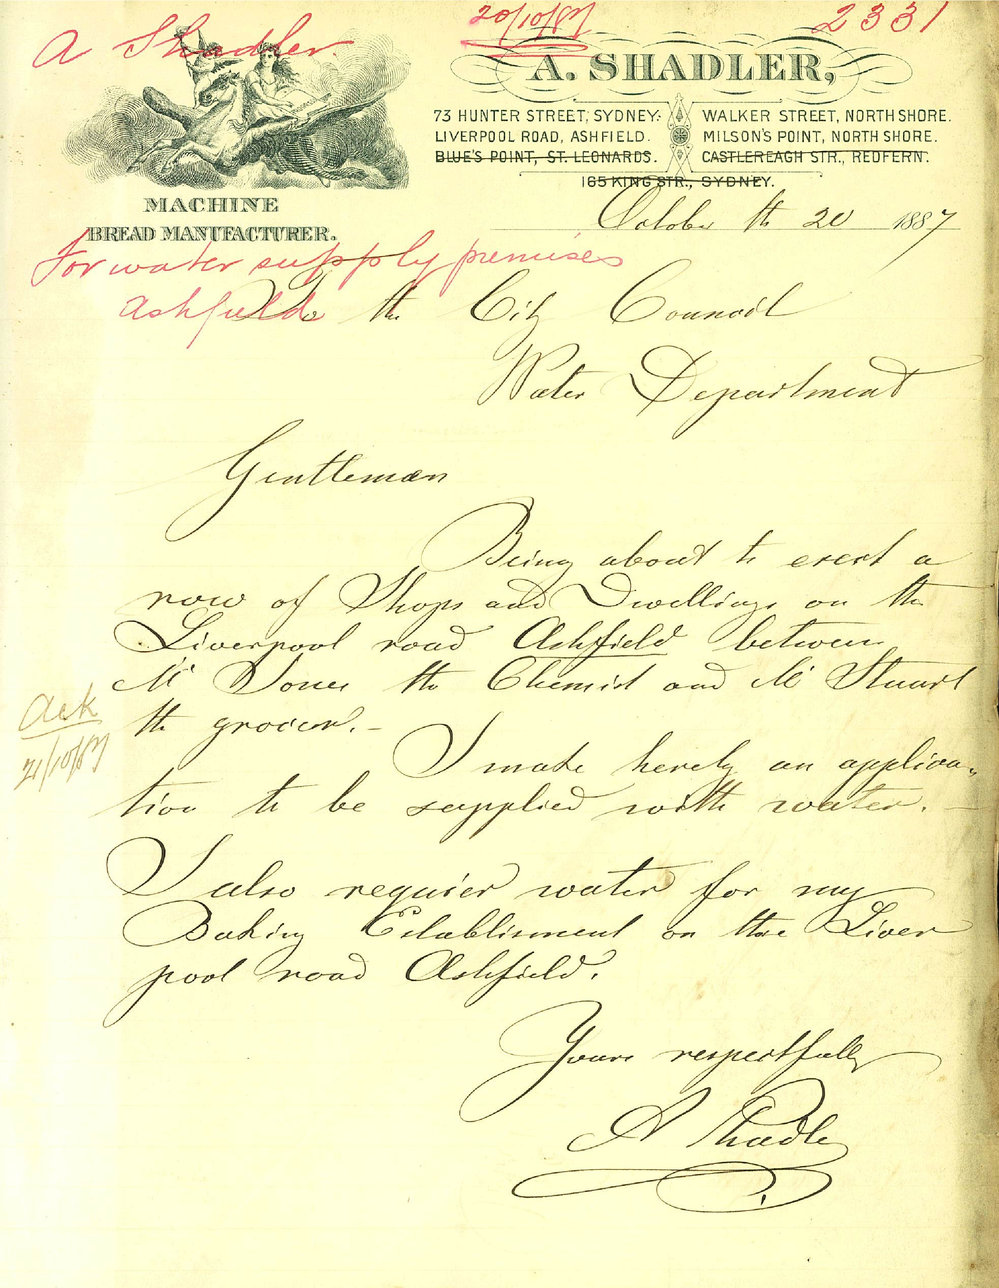 A Shadler
20/10/87
2331
A. SHADLER,
73 HUNTER STREET, SYDNEY.
LIVERPOOL ROAD, ASHFIELD.
BLUE'S POINT, ST. LEONARDS.
WALKER STREET, NORTH SHORE.
MILSON'S POINT, NORTH SHORE.
CASTLEREAGH STR., REDFERN.
165 KING STR., SYDNEY.
MACHINE
BREAD MANUFACTURER.
October th 20 1887
For water supply premises
Ashfield
To the City Council
Water Department
Gentleman
Being about to erect a
row of Shops and Dwellings on the
Liverpool road Ashfield between
Mr Jones the Chemist and Mr Stuart
the grocer. -
I make herely an applica-
tion to be supplied with water. -
I also requier water for my
Baking Establishment on the Liver
pool road Ashfield.
Yours respectfully
A Shadler
Ack
21/10/87